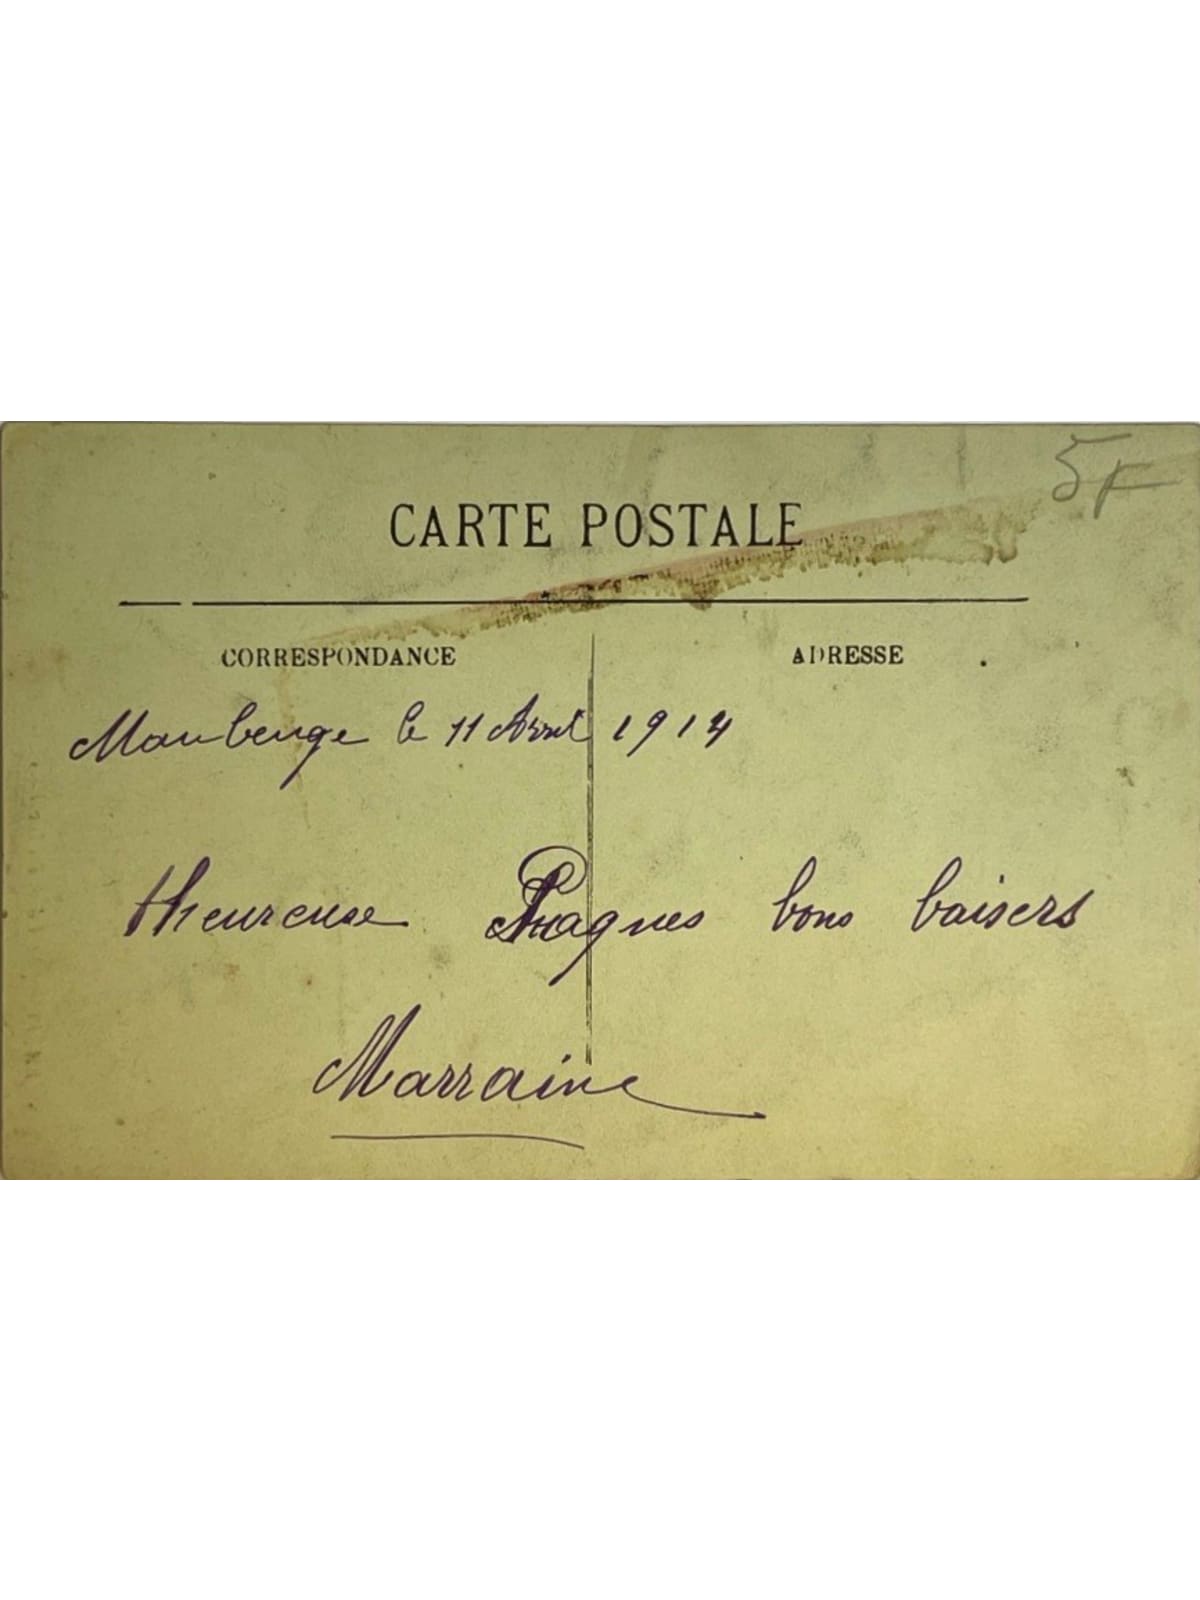 5F
CARTE POSTALE
CORRESPONDANCE
ADRESSE
Maubeuge le 11 Avril 1914
Heureuse Paques bons baisers
Marraine